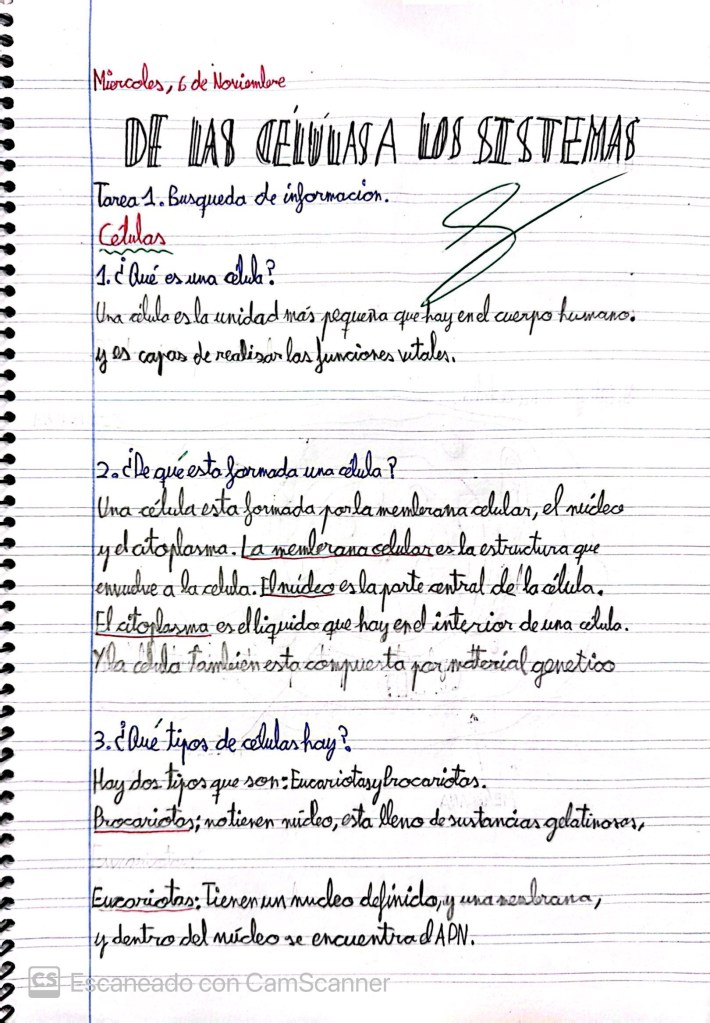 Miércoles, 6 de Noviembre
DE LAS CÉLÚLAS A LOS SISTEMAS
Tarea 1. Busqueda de informacion.
Células
1. ¿Qué es una célula?
Una célula es la unidad más pequeña que hay en el cuerpo humano.
y es capas de realisar las funciones vitales.
2. ¿De qué esta formada una célula?
Una célula esta formada por la membrana celular, el núcleo
y el citoplasma. La membrana celular es la estructura que
envuelve a la celula. El núcleo es la parte central de la célula.
El citoplasma es el liquido que hay en el interior de una célula.
Y la célula también esta compuesta por material genetico
3. ¿Qué tipos de celulas hay?
Hay dos tipos que son: Eucariotas y Procariotas.
Procariotas; no tienen núcleo, esta lleno de sustancias gelatinosas,
Eucariotas: Tienen un nucleo definido, y una membrana,
y dentro del núcleo se encuentra el ADN.
CS Escaneado con CamScanner